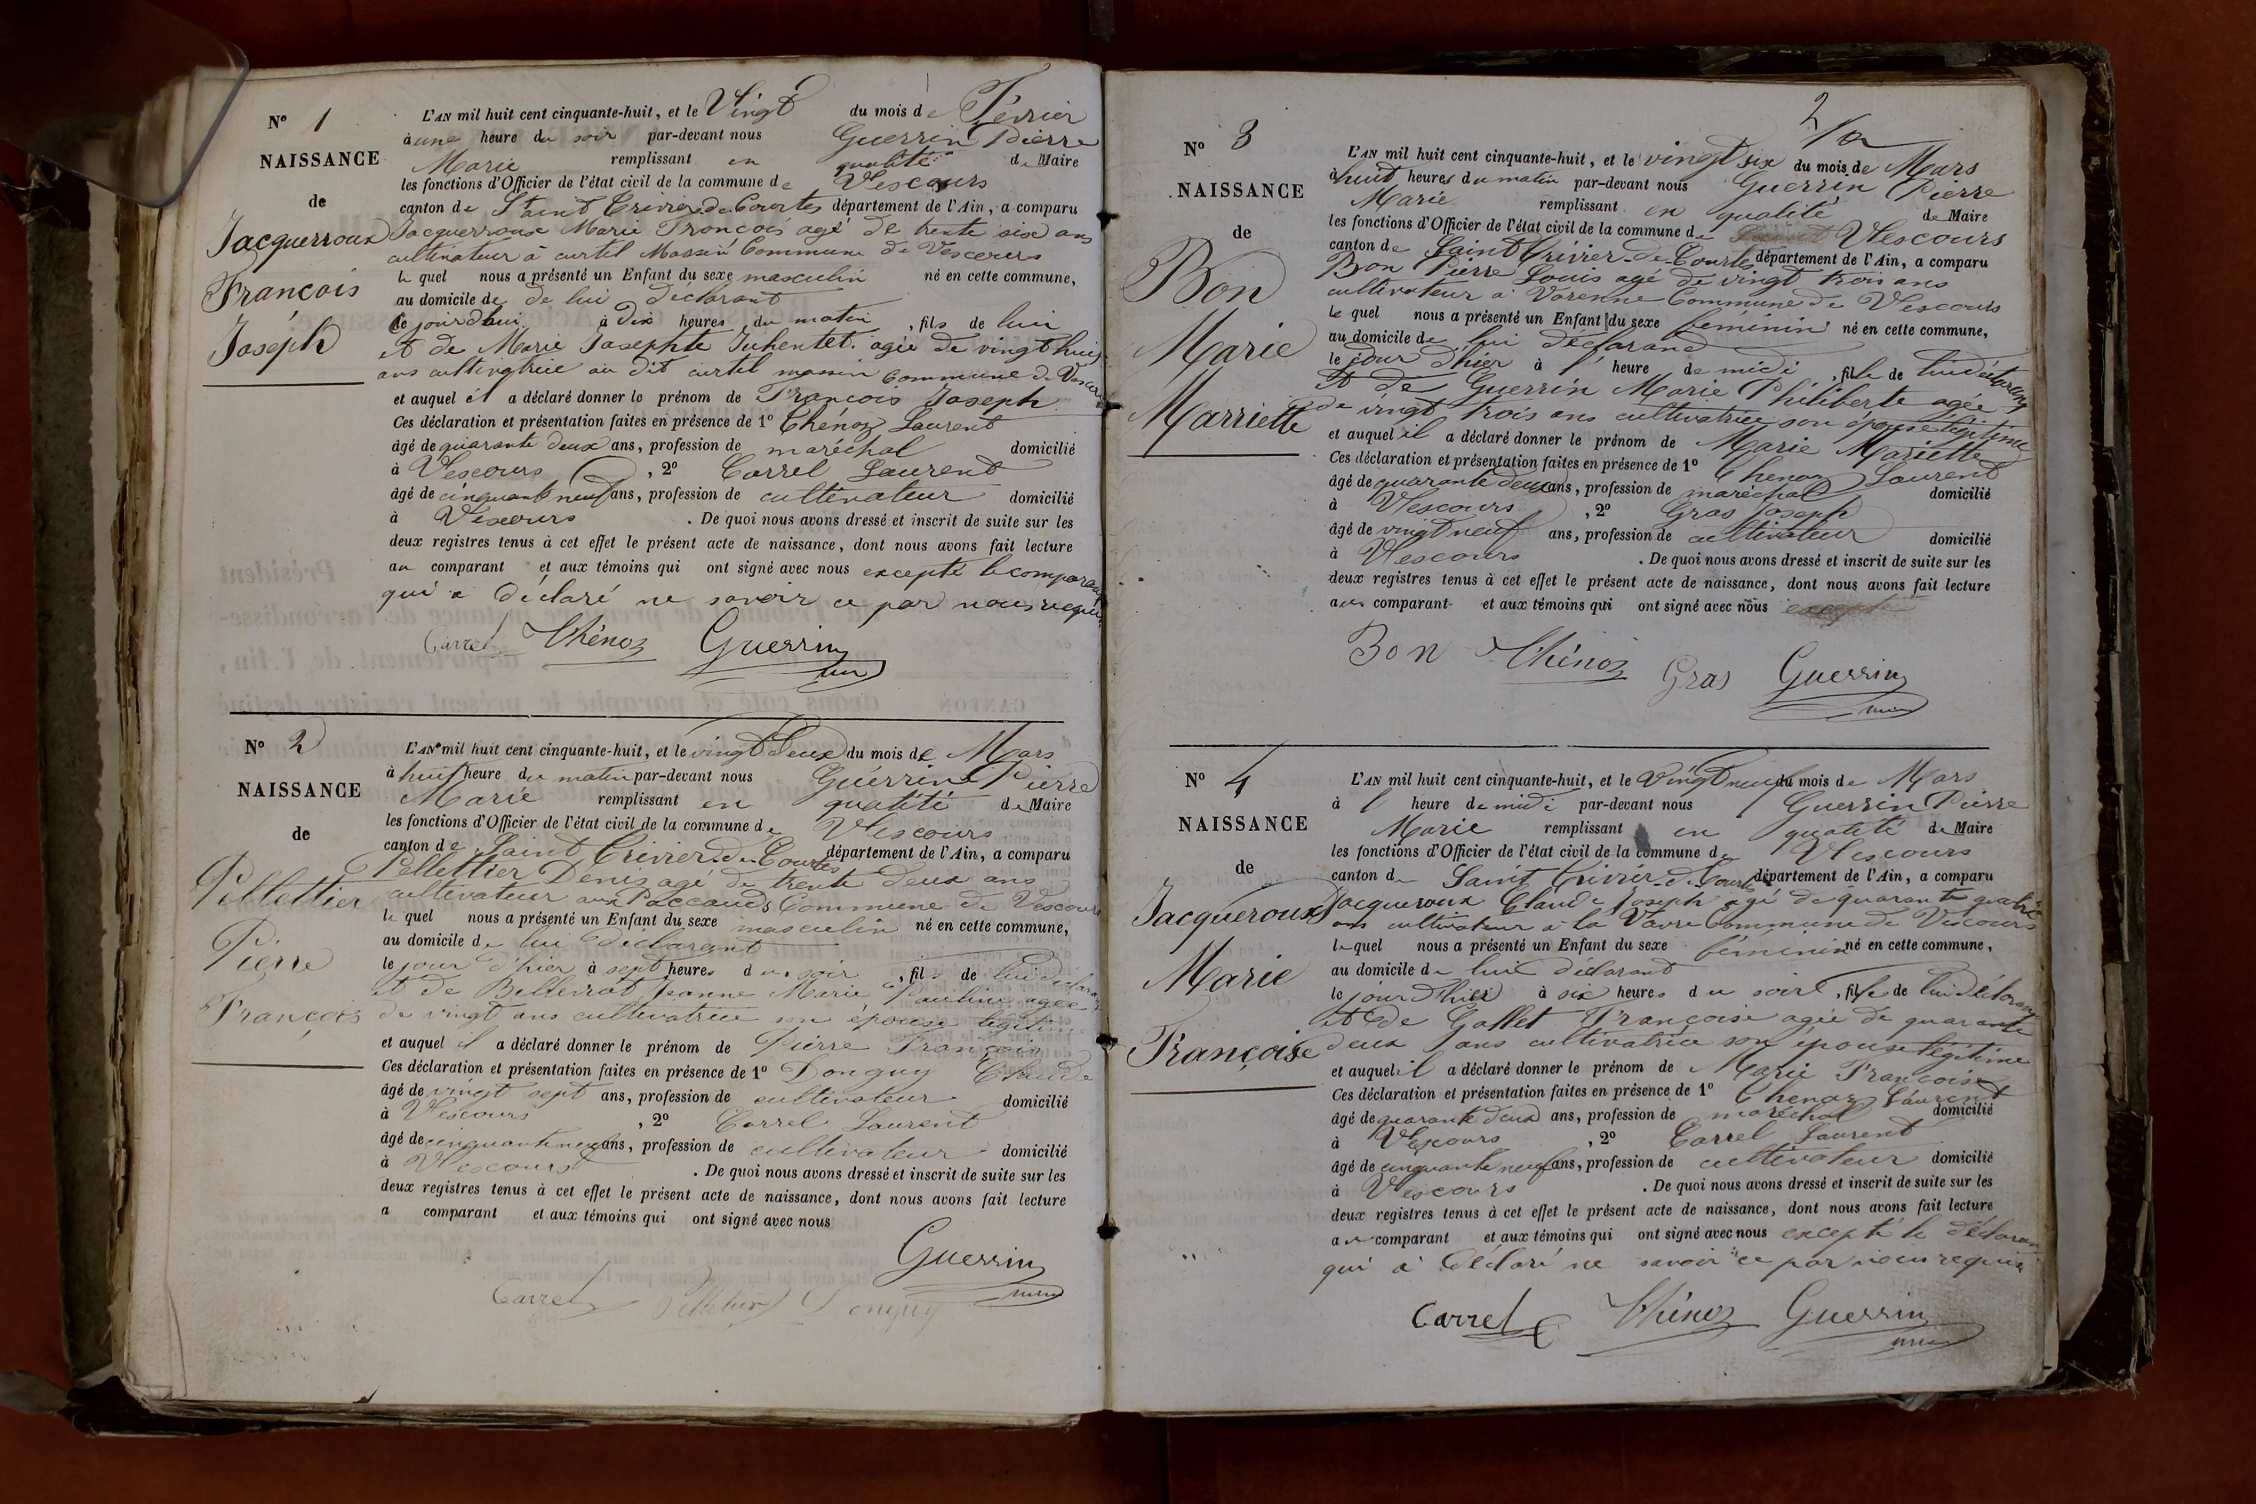 N° 1
NAISSANCE
de
Jacquerroux
François
Joseph
L'AN mil huit cent cinquante-huit, et le Vingt du mois de Février
à une heure du soir par-devant nous Guerrin Pierre
Marie remplissant en qualité de Maire
les fonctions d'Officier de l'état civil de la commune de Vescours
canton de Saint Trivier de Courtes département de l'Ain, a comparu
Jacquerroux Marie François agé de trente six ans
cultivateur à curtil Massin Commune de Vescours
le quel nous a présenté un Enfant du sexe masculin né en cette commune,
au domicile de de lui déclarant
le jourd'hui à Dix heures du matin, fils de lui
et de Marie Josephte agée de vingt huit
ans cultivatrice au dit curtil massin Commune de Vescours
et auquel il a déclaré donner le prénom de François Joseph
Ces déclaration et présentation faites en présence de 1° Thénoz Laurent
âgé de quarante deux ans, profession de maréchal domicilié
à Vescours, 2° Carrel Laurent
âgé de cinquante neuf ans, profession de cultivateur domicilié
à Vescours. De quoi nous avons dressé et inscrit de suite sur les
deux registres tenus à cet effet le présent acte de naissance, dont nous avons fait lecture
au comparant et aux témoins qui ont signé avec nous excepté le comparant
qui a déclaré ne savoir ce par nous requis
Carrel Thénoz Guerrin
N° 2
NAISSANCE
de
Pellettier
Pierre
François
L'AN mil huit cent cinquante-huit, et le vingt Deux du mois de Mars
à huit heure du matin par-devant nous Guérrin Pierre
Marie remplissant en qualité de Maire
les fonctions d'Officier de l'état civil de la commune de Vescours
canton de Saint Trivier de Courtes département de l'Ain, a comparu
Pellettier Denis agé de trente deux ans
cultivateur aux Paccauds Commune de Vescours
le quel nous a présenté un Enfant du sexe masculin né en cette commune,
au domicile de lui déclarant
le jour d'hier à sept heures du soir, fils de lui déclarant
et de Jeanne Marie Pauline agée
de vingt ans cultivatrice son épouse légitime
et auquel il a déclaré donner le prénom de Pierre François
Ces déclaration et présentation faites en présence de 1° Donguy Claude
âgé de vingt sept ans, profession de cultivateur domicilié
à Vescours, 2° Carrel Laurent
âgé de cinquante neuf ans, profession de cultivateur domicilié
à Vescours. De quoi nous avons dressé et inscrit de suite sur les
deux registres tenus à cet effet le présent acte de naissance, dont nous avons fait lecture
a comparant et aux témoins qui ont signé avec nous
Guerrin
Carrel Pelletier Donguy
2
N° 3
NAISSANCE
de
Bon
Marie
Marriette
L'AN mil huit cent cinquante-huit, et le vingt six du mois de Mars
à huit heures du matin par-devant nous Guerrin Pierre
Marie remplissant en qualité de Maire
les fonctions d'Officier de l'état civil de la commune de Vescours
canton de Saint Trivier-de-Courtes département de l'Ain, a comparu
Bon Pierre Louis agé de vingt trois ans
cultivateur à Varenne Commune de Vescours
le quel nous a présenté un Enfant du sexe féminin né en cette commune,
au domicile de lui déclarant
le jour d'hier à 1 heure de midi, fille de lui déclarant
et de Guerrin Marie Philiberte agée
de vingt trois ans cultivatrice son épouse légitime
et auquel il a déclaré donner le prénom de Marie Mariette
Ces déclaration et présentation faites en présence de 1° Thenoz Laurent
âgé de quarante deux ans, profession de maréchal domicilié
à Vescours, 2° Gras Joseph
âgé de vingt neuf ans, profession de cultivateur domicilié
à Vescours. De quoi nous avons dressé et inscrit de suite sur les
deux registres tenus à cet effet le présent acte de naissance, dont nous avons fait lecture
au comparant et aux témoins qui ont signé avec nous
Bon Thénoz Gras Guerrin
N° 4
NAISSANCE
de
Jacqueroux
Marie
Françoise
L'AN mil huit cent cinquante-huit, et le Vingt neuf du mois de Mars
à 1 heure de midi par-devant nous Guerrin Pierre
Marie remplissant en qualité de Maire
les fonctions d'Officier de l'état civil de la commune de Vescours
canton de Saint Trivier-de-Courtes département de l'Ain, a comparu
Jacqueroux Claude Joseph agé de quarante quatre
ans cultivateur à la Vavre Commune de Vescours
le quel nous a présenté un Enfant du sexe féminin né en cette commune,
au domicile de lui déclarant
le jour d'hier à six heures du soir, fille de lui déclarant
et de Gallet Françoise agée de quarante
deux ans cultivatrice son épouse légitime
et auquel il a déclaré donner le prénom de Marie Françoise
Ces déclaration et présentation faites en présence de 1° Thenoz Laurent
âgé de quarante deux ans, profession de maréchal domicilié
à Vescours, 2° Carrel Laurent
âgé de cinquante neuf ans, profession de cultivateur domicilié
à Vescours. De quoi nous avons dressé et inscrit de suite sur les
deux registres tenus à cet effet le présent acte de naissance, dont nous avons fait lecture
au comparant et aux témoins qui ont signé avec nous excepté le déclarant
qui a déclaré ne savoir ce par nous requis
Carrel Thénoz Guerrin